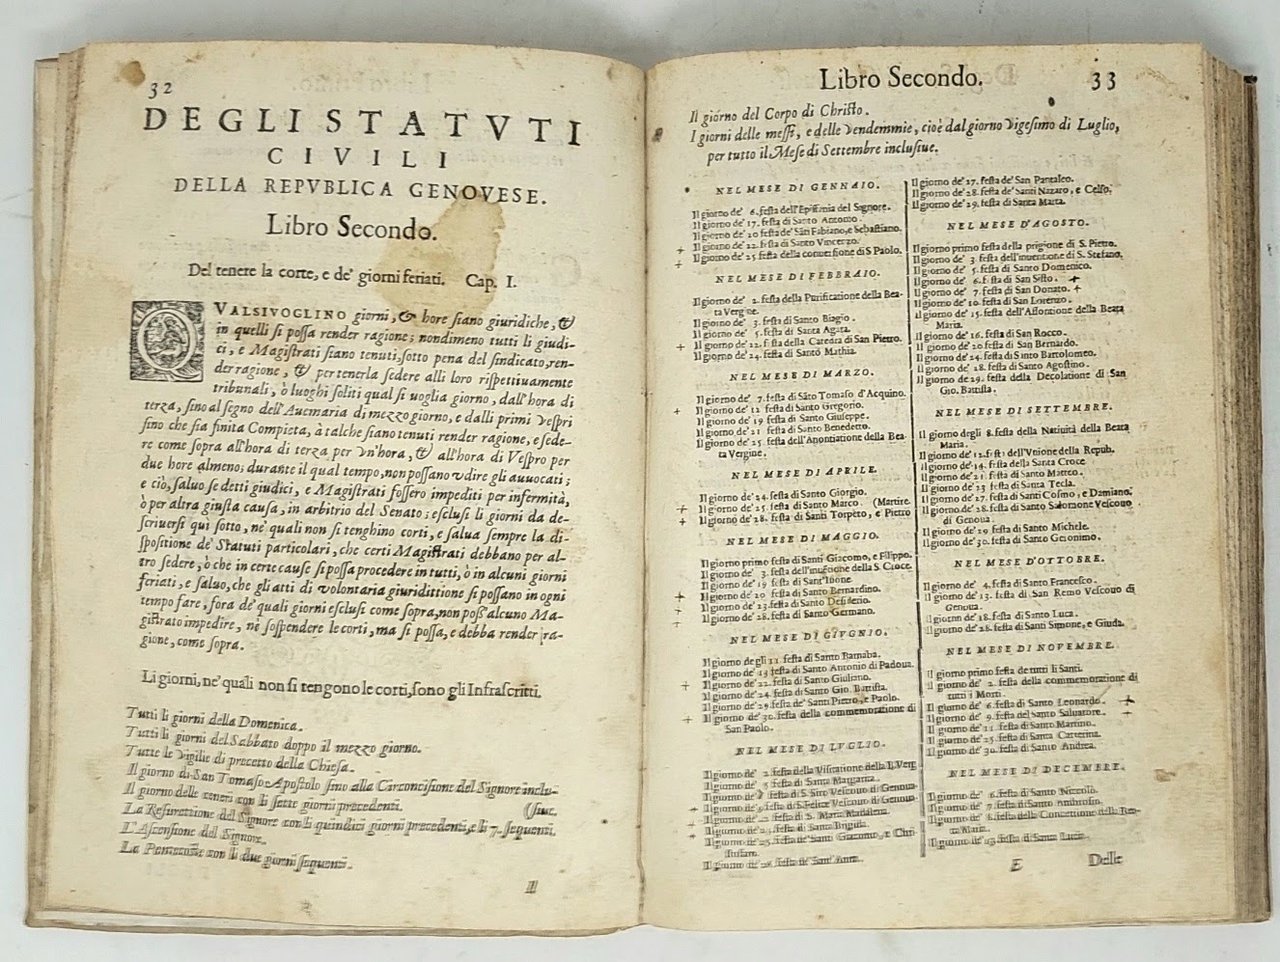 32
DEGLI STATVTI
CIVILI
DELLA REPVBLICA GENOVESE.
Libro Secondo.
Del tenere la corte, e de' giorni feriati. Cap. I.
QVALSIVOGLINO giorni, & hore siano giuridiche, &
in quelli si possa render ragione; nondimeno tutti li giudi-
ci, e Magistrati siano tenuti, sotto pena del sindicato, ren-
der ragione, & per tenerla sedere alli loro rispettiuamente
tribunali, ò luoghi soliti qual si uoglia giorno, dall'hora di
terza, sino al segno dell'Auemaria di mezzo giorno, e dalli primi Vespri
sino che sia finita Compieta, à talche siano tenuti render ragione, e sede-
re come sopra all'hora di terza per vn'hora, & all'hora di Vespro per
due hore almeno; durante il qual tempo, non possano vdire gli auuocati;
e ciò, saluo se detti giudici, e Magistrati fossero impediti per infermità,
ò per altra giusta causa, in arbitrio del Senato; esclusi li giorni da de-
scriuersi qui sotto, ne' quali non si tenghino corti, e salua sempre la di-
spositione de' Statuti particolari, che certi Magistrati debbano per al-
tro sedere, ò che in certe cause si possa procedere in tutti, ò in alcuni giorni
feriati, e saluo, che gli atti di volontaria giuridittione si possano in ogni
tempo fare, fora de' quali giorni esclusi come sopra, non poss'alcuno Ma-
gistrato impedire, nè sospendere le corti, ma si possa, e debba render ra-
gione, come sopra.
Li giorni, ne' quali non si tengono le corti, sono gli Infrascritti.
Tutti li giorni della Domenica.
Tutti li giorni del Sabbato doppo il mezzo giorno.
Tutte le Vigilie di precetto della Chiesa.
Il giorno di San Tomaso Apostolo sino alla Circoncisione del Signore inclu-
(siue.
Il giorno delle ceneri con li sette giorni precedenti.
La Resurettione del Signore con li quindici giorni precedenti, e li 7. sequenti.
L'Ascensione del Signore.
La Pentecoste con li due giorni sequenti.
Il
Libro Secondo. 33
Il giorno del Corpo di Christo.
I giorni delle messi, e delle vendemmie, cioè dal giorno vigesimo di Luglio,
per tutto il Mese di Settembre inclusiue.
NEL MESE DI GENNAIO.
Il giorno de' 6. festa dell'Epifania del Signore.
Il giorno de' 17. festa di Santo Antonio.
Il giorno de' 20 festa de' Sãti Fabiano, e Sebastiano.
Il giorno de' 22 festa di Santo Vincenzo.
Il giorno de' 25 festa della conuersione di S Paolo.
NEL MESE DI FEBBRAIO.
Il giorno de' 2. festa della Purificatione della Bea-
ta Vergine.
Il giorno de' 3. festa di Santo Biagio.
Il giorno de' 5. festa di Santa Agata.
Il giorno de' 22. festa della Catedra di San Pietro.
Il giorno de' 24. festa di Santo Mathia.
NEL MESE DI MARZO.
Il giorno de' 7. festa di Sãto Tomaso d'Acquino.
Il giorno de' 12 festa di Santo Gregorio.
Il giorno de' 19 festa di Santo Giuseppe.
Il giorno de' 21 festa di Santo Benedetto.
Il giorno de' 25. festa dell'Anontiatione della Bea-
ta Vergine.
NEL MESE DI APRILE.
Il giorno de' 24. festa di Santo Giorgio.
Il giorno de' 25. festa di Santo Marco. (Martire.
Il giorno de' 28. festa di Santi Torpeto, e Pietro
NEL MESE DI MAGGIO.
Il giorno primo festa di Santi Giacomo, e Filippo.
Il giorno de' 3. festa dell'inuẽtione della S. Croce.
Il giorno de' 19 festa di Sant'Iuone.
Il giorno de' 20 festa di Santo Bernardino.
Il giorno de' 23. festa di Santo Desiderio.
Il giorno de' 28. festa di Santo Germano.
NEL MESE DI GIVGNIO.
Il giorno degli 11. festa di Santo Barnaba.
Il giorno de' 13 festa di Santo Antonio di Padoua.
Il giorno de' 22. festa di Santo Giuliano.
Il giorno de' 24. festa di Santo Gio. Battista.
Il giorno de' 29. festa de' Santi Pietro, e Paolo.
Il giorno de' 30. festa della commemoratione di
San Paolo.
NEL MESE DI LVGLIO.
Il giorno de' 2. festa della Visitatione della B. Verg
Il giorno de' 5 festa di Santa Margarita.
Il giorno de' 7 festa di S. Siro Vescouo di Genoua
Il giorno de' 9. festa di S. Felice Vescouo di Genoua.
Il giorno de' 22. festa di S. Maria Madalena.
Il giorno de' festa di Santa Brigida.
Il giorno de' 25 festa de' Santo Giacomo, e Chri
stofaro.
Il giorno de' 26. festa de' Sant'Anna.
Il giorno de' 27. festa de' San Pantaleo.
Il giorno de' 28. festa de' Santi Nazaro, e Celso.
Il giorno de' 29. festa di Santa Marta.
NEL MESE D'AGOSTO.
Il giorno primo festa della prigione di S. Pietro.
Il giorno de' 3 festa dell'inuentione di S. Stefano.
Il giorno de' 5. festa di Santo Domenico.
Il giorno de' 6. festa di San Sisto.
Il giorno de' 7. festa di San Donato.
Il giorno de' 10. festa di San Lorenzo.
Il giorno de' 15. festa dell'Assontione della Beata
Maria.
Il giorno de' 16. festa di San Rocco.
Il giorno de' 20 festa di San Bernardo.
Il giorno de' 24. festa di Santo Bartolomeo.
Il giorno de' 28. festa di Santo Agostino.
Il giorno de 29. festa della Decolatione di San
Gio. Battista.
NEL MESE DI SETTEMBRE.
Il giorno degli 8. festa della Natiuità della Beata
Maria.
Il giorno de' 12. festa dell'Vnione della Repub.
Il giorno de' 14. festa della Santa Croce
Il giorno de' 21. festa di Santo Matteo.
Il giorno de' 23 festa di Santa Tecla.
Il giorno de' 27. festa di Santi Cosmo, e Damiano.
Il giorno de' 28. festa di Santo Salomone Vescouo
di Genoua.
Il giorno de' 29. festa di Santo Michele.
Il giorno de' 30. festa di Santo Geronimo.
NEL MESE D'OTTOBRE.
Il giorno de' 4. festa di Santo Francesco.
Il giorno de' 13. festa di San Remo Vescouo di
Genoua.
Il giorno de' 18. festa di Santo Luca.
Il giorno de' 28. festa di Santi Simone, e Giuda.
NEL MESE DI NOVEMBRE.
Il giorno primo festa de tutti li Santi.
Il giorno de' 2. festa della commemoratione di
tutti i Morti.
Il giorno de' 6. festa di Santo Leonardo.
Il giorno de' 9. festa del Santo Saluatore.
Il giorno de' 11. festa di Santo Martino.
Il giorno de' 25. festa di Santa Catterina.
Il giorno de' 30. festa di Santo Andrea.
NEL MESE DI DECEMBRE.
Il giorno de' 6. festa di Santo Niccolò.
Il giorno de' 7. festa di Santo Ambrosio.
Il giorno de' 8. festa della Concettione della Bea-
ta Maria.
Il giorno de' 13. festa di Santa Lucia.
E Delle